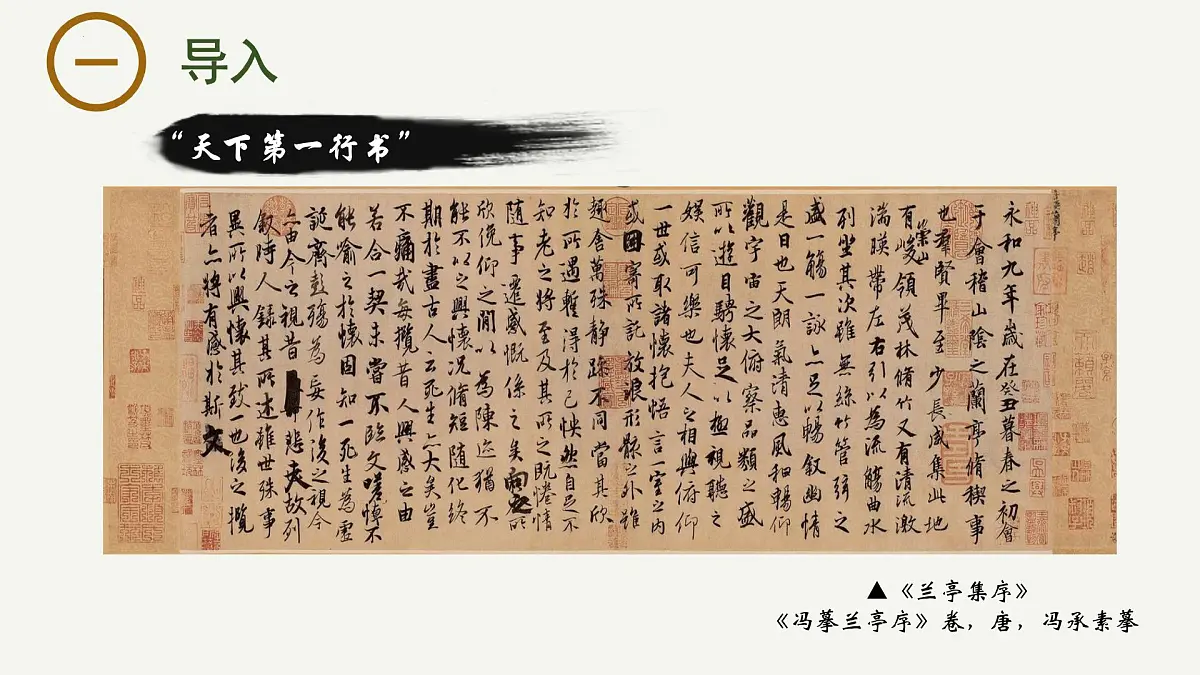 一
导入
“天下第一行书”
永和九年歲在癸丑暮春之初會
于會稽山陰之蘭亭脩稧事
也羣賢畢至少長咸集此地
有崇山峻領茂林脩竹又有清流激
湍暎帶左右引以為流觴曲水
列坐其次雖無絲竹管弦之
盛一觴一詠亦足以暢叙幽情
是日也天朗氣清惠風和暢仰
觀宇宙之大俯察品類之盛
所以遊目騁懷足以極視聽之
娛信可樂也夫人之相與俯仰
一世或取諸懷抱悟言一室之內
或因寄所託放浪形骸之外雖
趣舍萬殊靜躁不同當其欣
於所遇蹔得於己怏然自足不
知老之將至及其所之既惓情
隨事遷感慨係之矣向之所
欣俛仰之閒以為陳迹猶不
能不以之興懷況脩短隨化終
期於盡古人云死生亦大矣豈
不痛哉每攬昔人興感之由
若合一契未嘗不臨文嗟悼不
能喻之於懷固知一死生為虛
誕齊彭殤為妄作後之視今
亦由今之視昔悲夫故列
叙時人錄其所述雖世殊事
異所以興懷其致一也後之攬
者亦將有感於斯文
▲《兰亭集序》
《冯摹兰亭序》卷，唐，冯承素摹